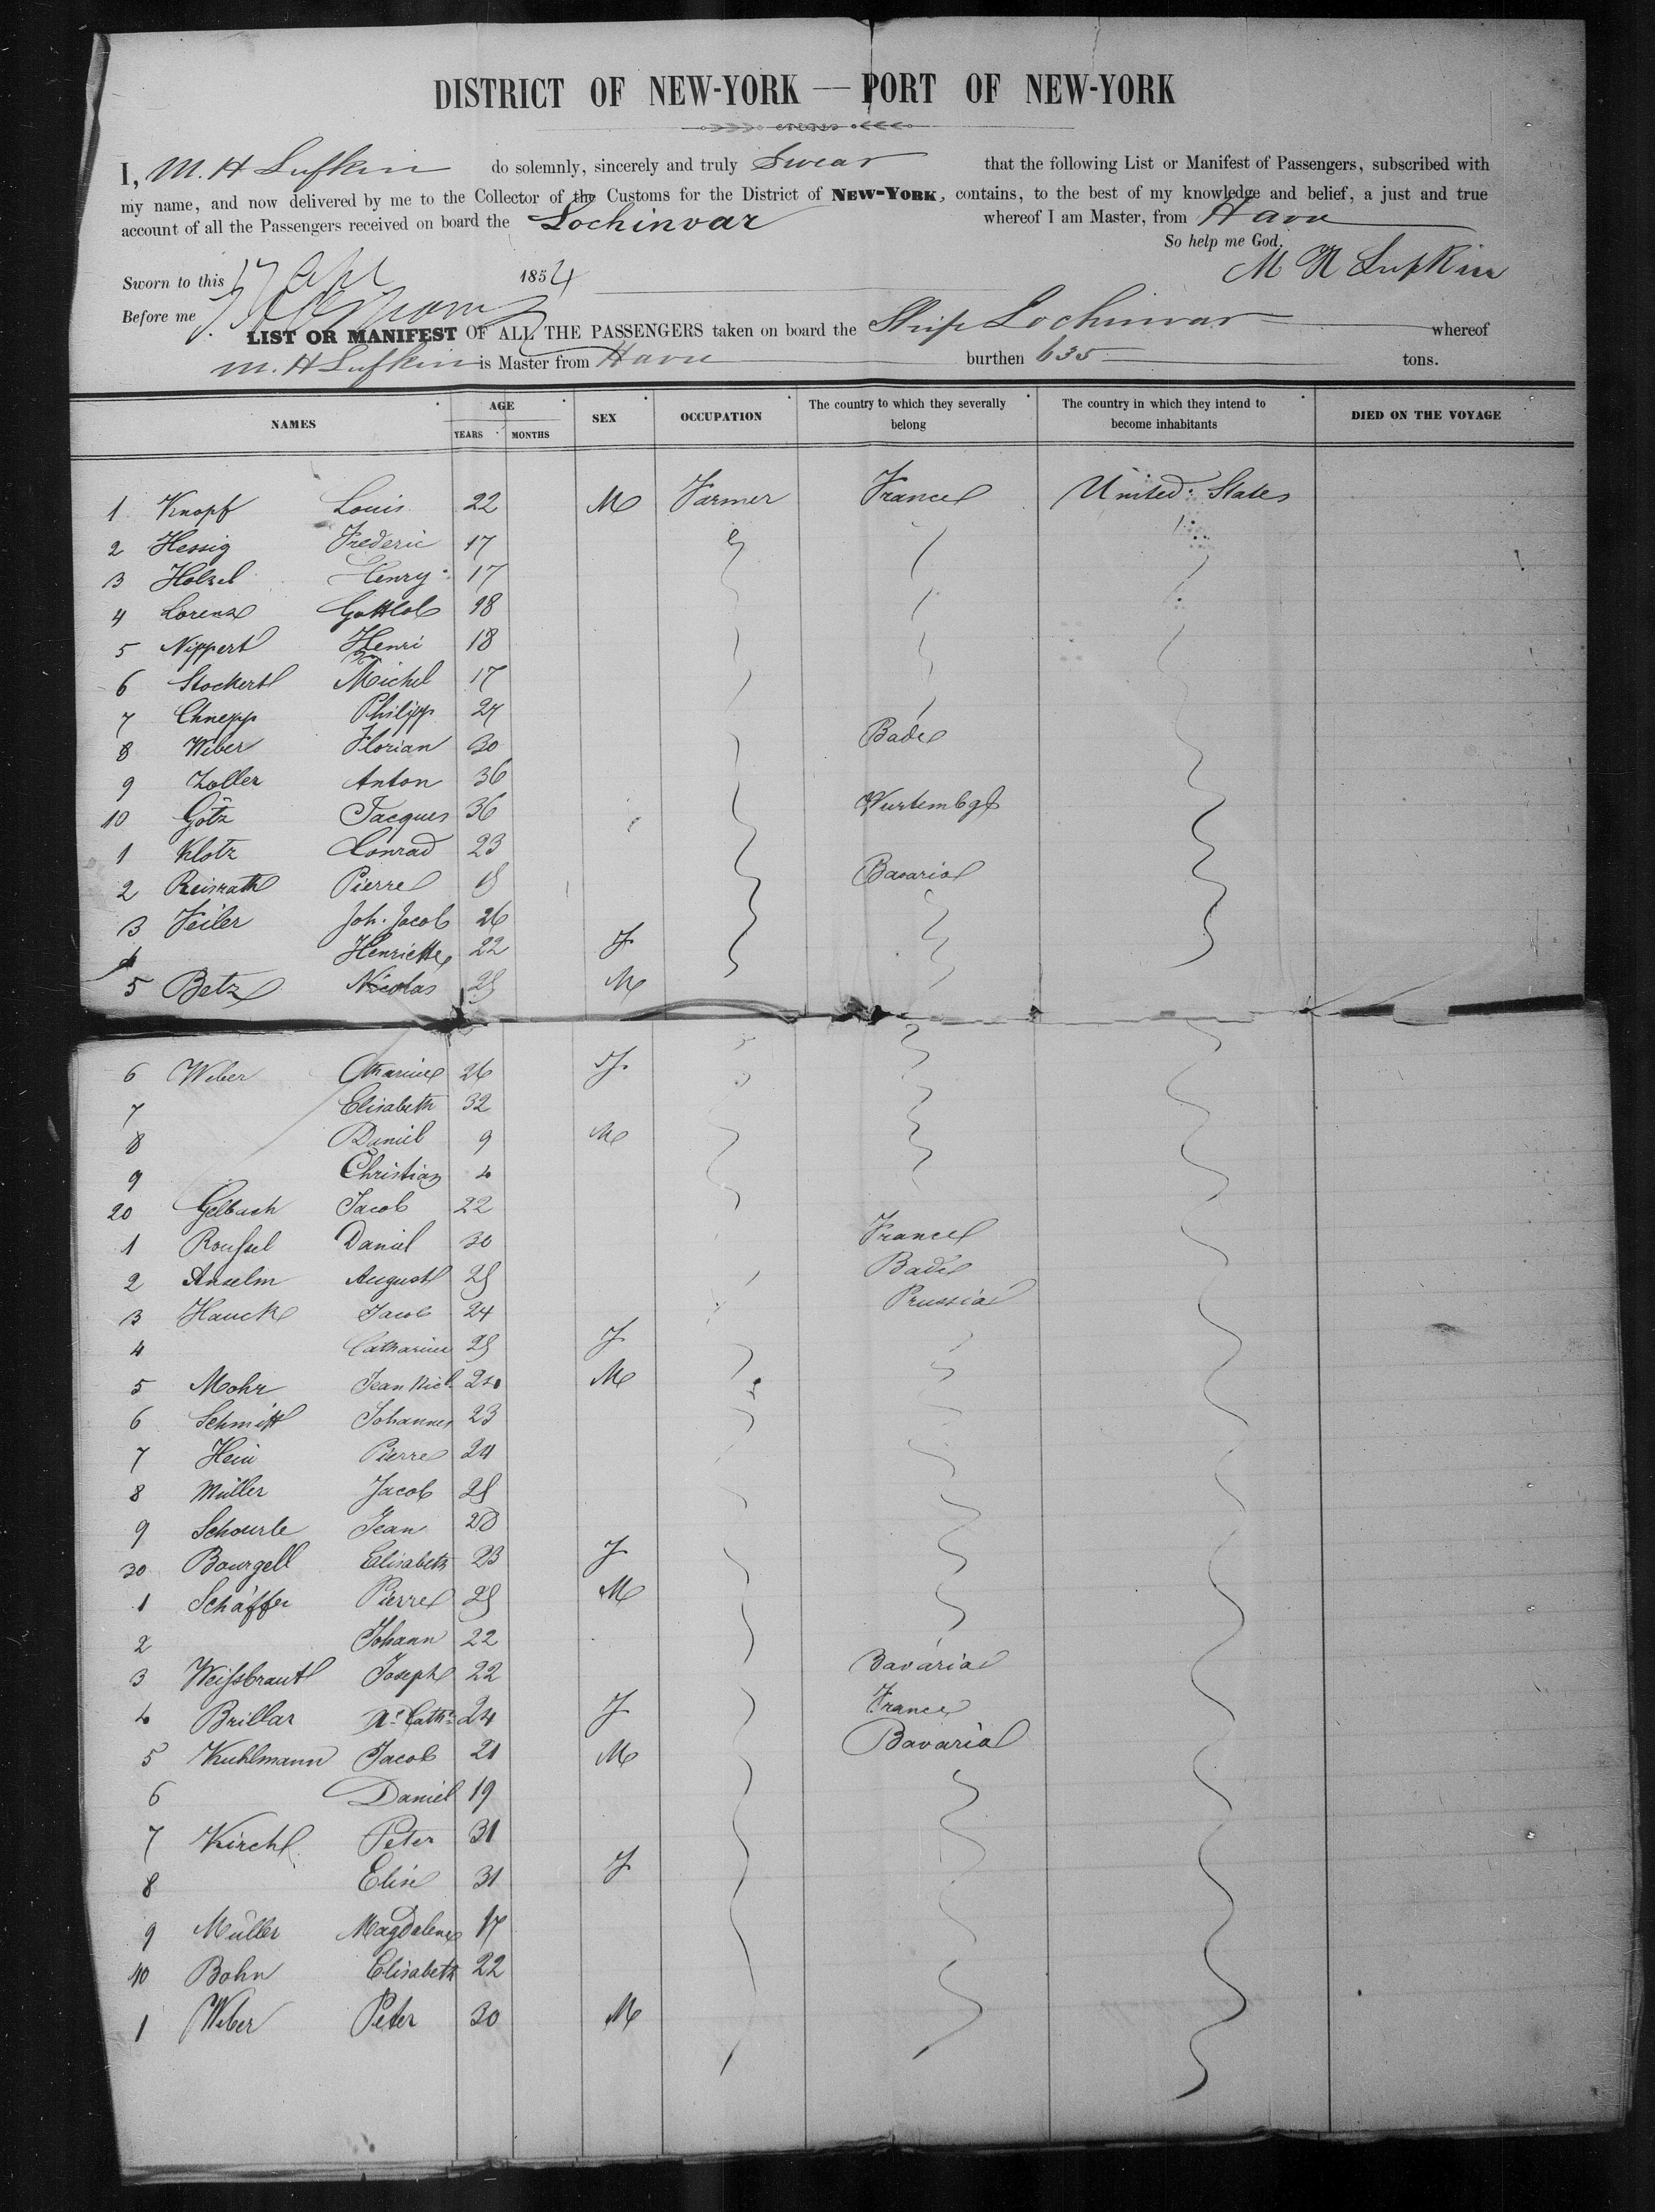 DISTRICT OF NEW-YORK — PORT OF NEW-YORK
I, M. H Lufkin do solemnly, sincerely and truly Swear that the following List or Manifest of Passengers, subscribed with
my name, and now delivered by me to the Collector of the Customs for the District of NEW-YORK, contains, to the best of my knowledge and belief, a just and true
account of all the Passengers received on board the Lochinvar whereof I am Master, from Havre
So help me God.
Sworn to this 17 Apl 1854 M H Lufkin
Before me
LIST OR MANIFEST OF ALL THE PASSENGERS taken on board the Ship Lochinvar whereof
M. H Lufkin is Master from Havre burthen 635 tons.
NAMES AGE YEARS MONTHS SEX OCCUPATION The country to which they severally belong The country in which they intend to become inhabitants DIED ON THE VOYAGE
1 Knopf Louis 22 M Farmer France United States
2 Hessig Frederic 17
3 Holzel Henry 17
4 Lorenz Gottlob 18
5 Nippert Henri 18
6 Stockert Michel 17
7 Chnepp Philipp 27
8 Weber Florian 30 Bade
9 Zoller Anton 36
10 Götz Jacques 36 Wurtembg
1 Klotz Conrad 23
2 Reisrath Pierre Bavaria
3 Feiler Joh. Jacob 26
4 Henriette 22 F
5 Betz Nicolas 25 M
6 Weber Catharine 26 F
7 Elisabeth 32
8 Daniel 9 M
9 Christian 4
20 Gelbach Jacob 22
1 Roussel Daniel 30 France
2 Anselm August 25 Bade
3 Hauck Jacob 24 Prussia
4 Catharine 25 F
5 Mohr Jean Nicl. 24 M
6 Schmitt Johannes 23
7 Hein Pierre 24
8 Müller Jacob 25
9 Schourle Jean 20
30 Bourgell Elisabeth 23 F
1 Schäffer Pierre 25 M
2 Johann 22
3 Weissbraut Joseph 22 Bavaria
4 Brillar Cath. 24 F France
5 Kuhlmann Jacob 21 M Bavaria
6 Daniel 19
7 Kirch Peter 31
8 Elise 31 F
9 Müller Magdalene 17
40 Bohn Elisabeth 22
1 Weber Peter 30 M